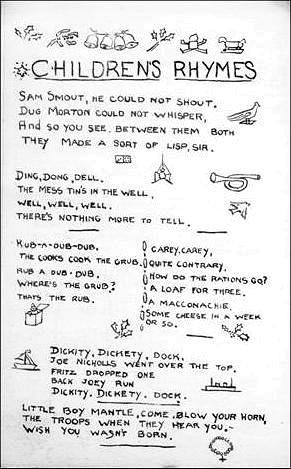 CHILDRENS RHYMES
SAM SMOUT, HE COULD NOT SHOUT.
DUG MORTON COULD NOT WHISPER,
AND SO YOU SEE. BETWEEN THEM BOTH
THEY MADE A SORT OF LISP, SIR.
DING, DONG, DELL.
THE MESS TIN'S IN THE WELL,
WELL, WELL, WELL.
THERE'S NOTHING MORE TO TELL.
RUB-A-DUB-DUB.
THE COOKS COOK THE GRUB.
RUB A DUB-DUB.
WHERE'S THE GRUB?
THATS THE RUB.
CAREY, CAREY,
QUITE CONTRARY.
HOW DO THE RATIONS GO?
A LOAF FOR THREE.
A MACCONACHIE.
SOME CHEESE IN A WEEK
OR SO.
DICKITY, DICKETY, DOCK.
JOE NICHOLLS WENT OVER THE TOP.
FRITZ DROPPED ONE
BACK JOEY RUN
DICKITY. DICKETY. DOCK.
LITTLE BOY MANTLE, COME, BLOW YOUR HORN,
THE TROOPS WHEN THEY HEAR YOU,-
WISH YOU WASN'T BORN.